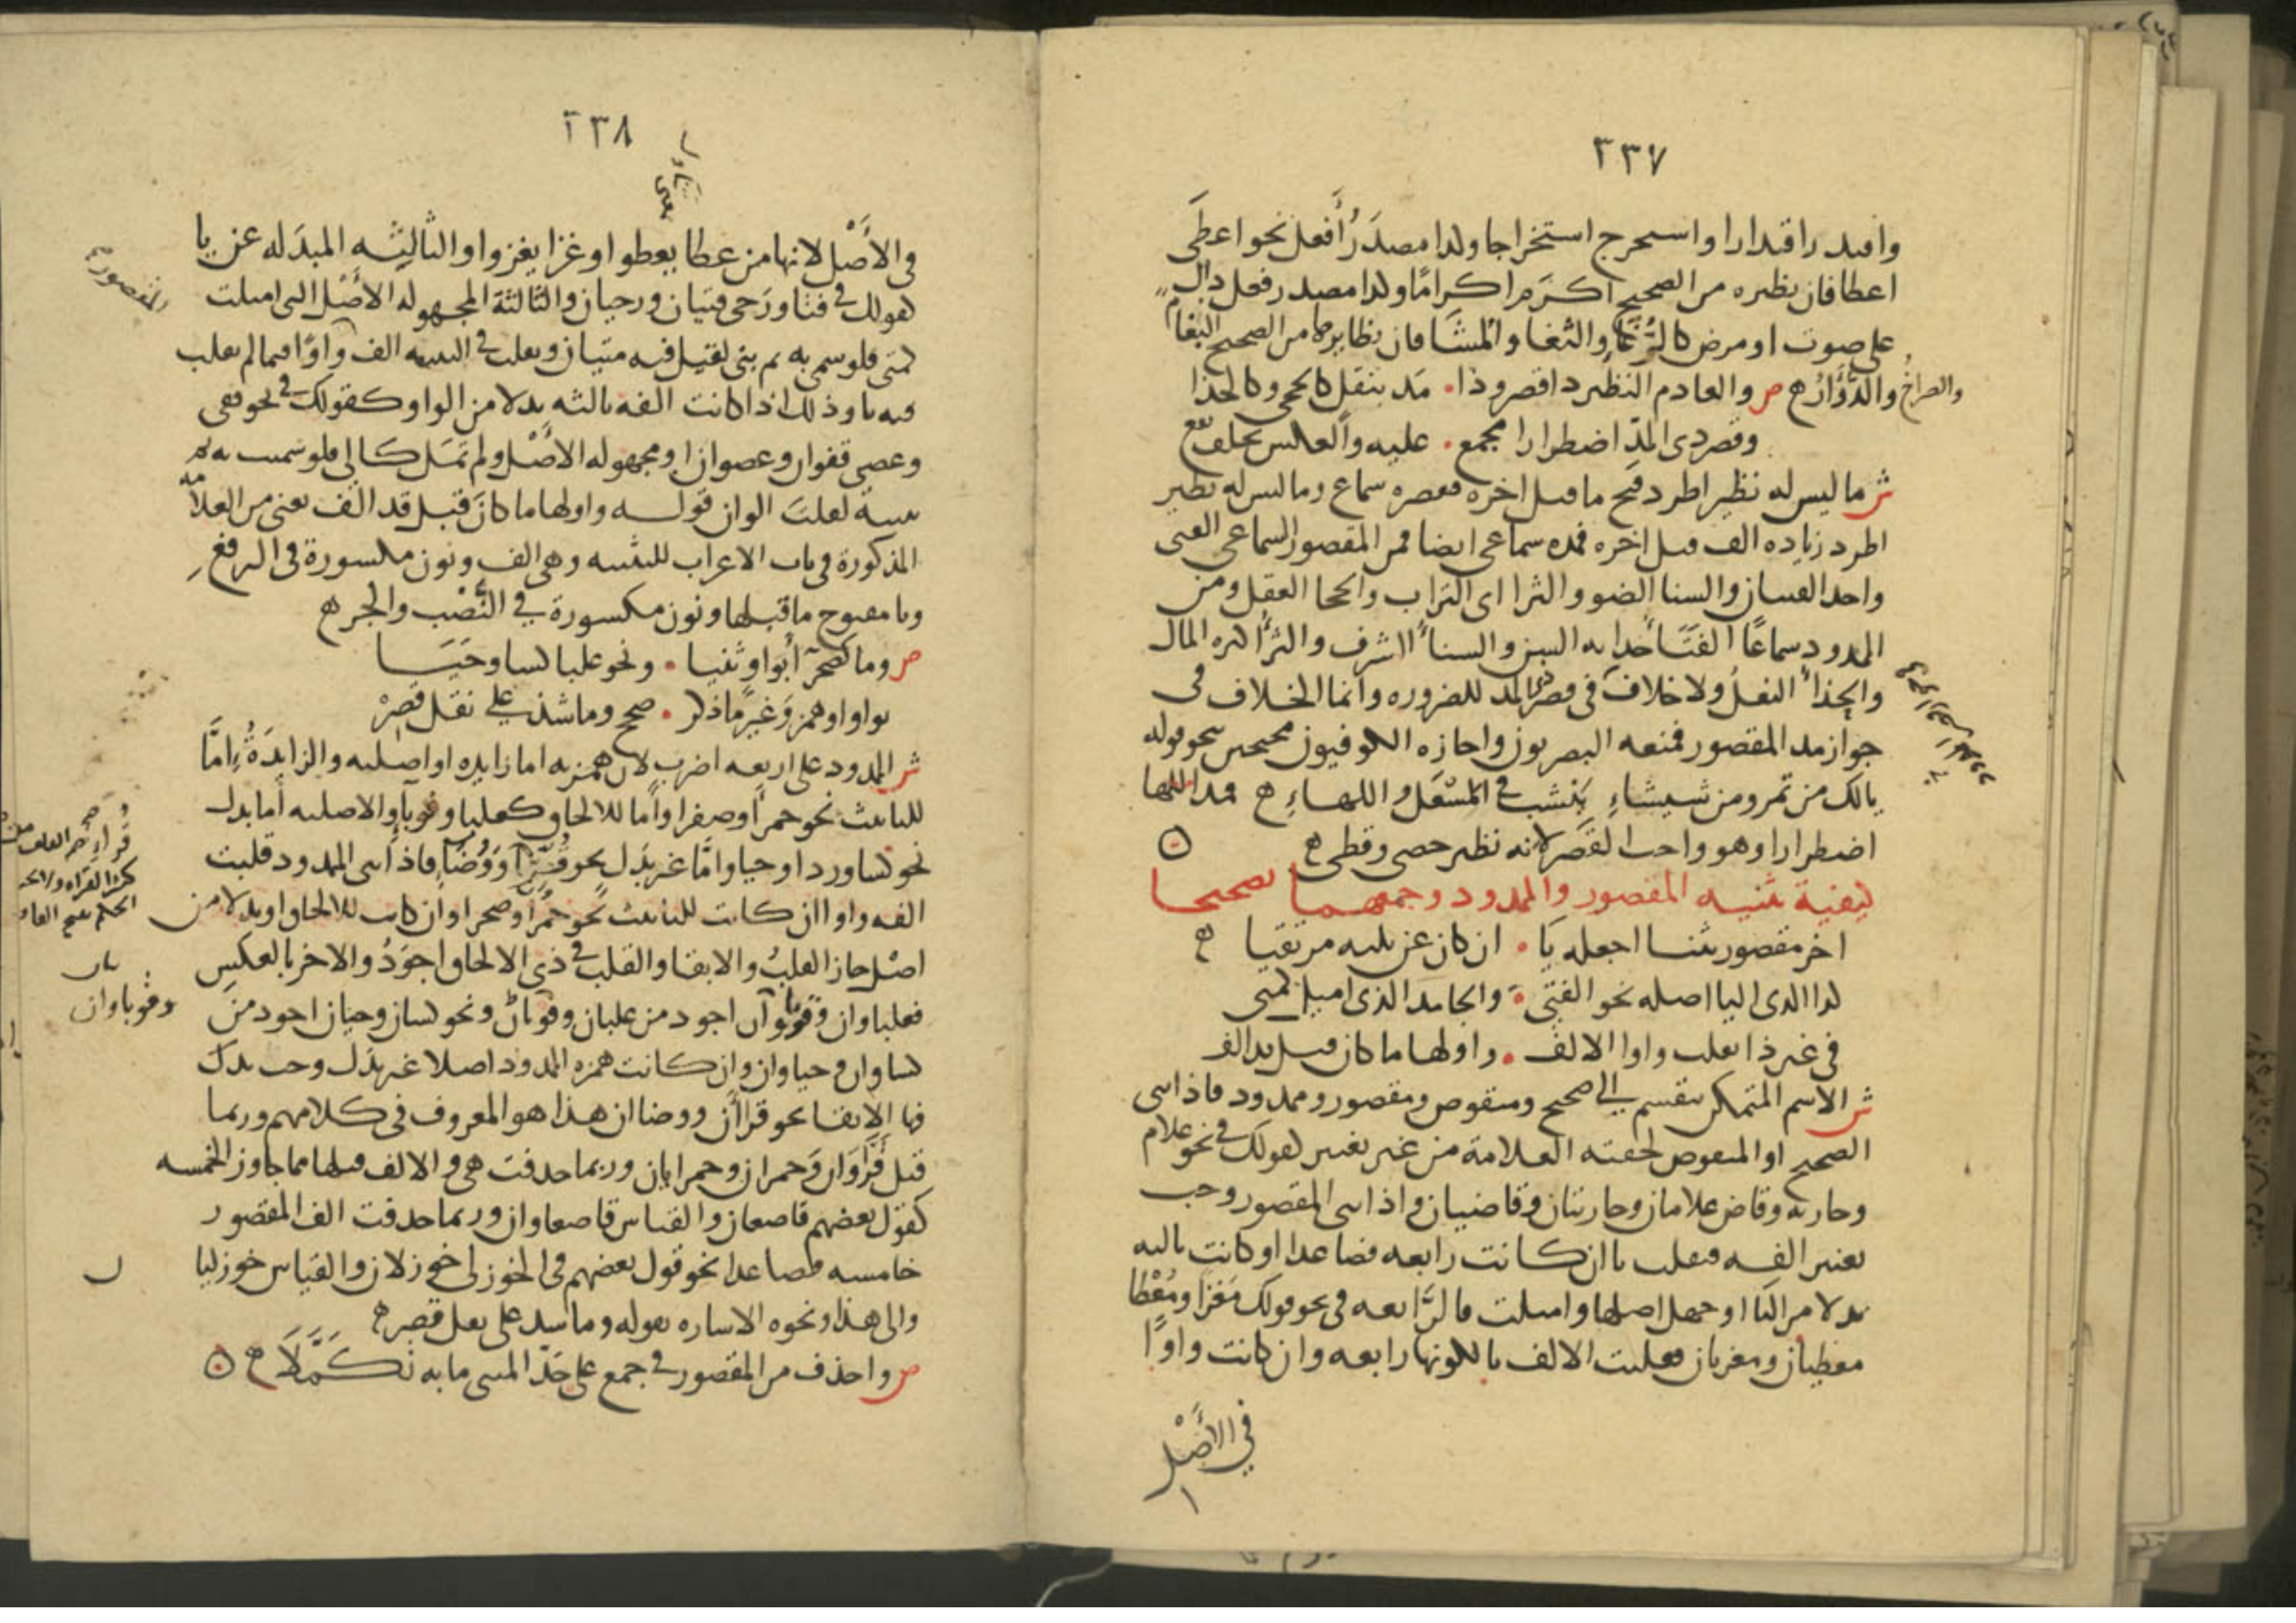 ٣٣٧
واقتدر اقتدارا واستخرج استخراجا ولذا مصدر أفعل نحو اعطى
اعطا فان نظيره من الصحيح اكرم اكرامًا ولذا مصدر فعل دال
على صوت او مرض كالرُّغَا والثغا والمشا فان نظايرها من الصحيح البغام
والصراخ
والدُّوَّار ه ص والعادم النظير ذا قصر وذا . مد بنقل كالحجى وكالحذا
وقصر ذى المدّ اضطرارا مجمع . عليه والعكس بخلف يقع
ش ما ليس له نظير اطرد فتح ما قبل اخره فقصره سماع وما ليس له نظير
اطرد زياده الف قبل اخره فمده سماعى ايضا فمن المقصور السماعى الفتى
واحد الفتيان والسنا الضوو والثرا اى التراب والحجا العقل ومن
الممدود سماعًا الفَتَاء حداثه السن والسناء الشرف والثراء كثره المال
والحذاء النعل ولا خلاف فى قصر الممد للضروره وانما الخلاف فى
جواز مد المقصور فمنعه البصريون واجازه الكوفيون محتجين بنحو قوله
يا لك من تمر ومن شيشاءِ ينشب فى المسْعَل واللهاءِ ه فمد اللها
اضطرارا وهو واحب القصر لانه نظير حصى وقطى ه
كيفية تثنيه المقصور والممدود وجمعهما تصحيحا
اخر مقصور تثنى اجعله يَا . ان كان عن ثلثه مرتقيا ه
كذا الذى اليا اصله نحو الفتى . والجامد الذى اميل كمتى
فى غير ذا تقلب واوا الالف . واولها ما كان قبل قد الف
ش الاسم المتمكن ينقسم الى صحيح ومنقوص ومقصور وممدود فاذا ثنى
الصحيح او المنقوص لحقته العلامة من غير تغيير كقولك فى نحو غلام
وجاريه وقاض غلامان وجاريتان وقاضيان واذا ثنى المقصور وجب
تغيير الفه فتقلب يا ان كانت رابعه فصاعدا او كانت ثالثه
بدلا من اليا او جهل اصلها واميلت فالرَّابعه فى نحو قولك مَغزا ومُعْطا
معطيان ومغزيان فقلبت الالف يا لكونها رابعه وان كانت واوًا
فى الأصْل
٣٣٨
فى الأصْل لانها من عطا يعطوا وغزا يغزوا والثالثه المبدَله عن يا
كقولك فى فتا ورَحى فتيان ورحيان والثالثة المجهوله الأصْل التى اميلت
كمتى فلو سمى به ثم ثنى لقيل فيه متيان وتقلب فى التثنيه الف المقصور واوًا فيما لم يقلب
فيه يا وذلك اذا كانت الفه ثالثه بدلا من الواو كقولك فى نحو قفى
وعصى قفوان وعصوان او مجهوله الأصْل ولم تمَل كالى فلو سميت به ثم
ثنيته لقلتَ الوان قولـه واولها ما كانَ قبل قد الف يعنى من العلامه
المذكورة فى باب الاعراب للتثنيه وهى الف ونون مكسورة فى الرفع
ويا مفتوح ما قبلها ونون مكسورة فى النَّصْب والجر ه
ص وما كصحرآ بواو ثنيا . ونحو علبا كسا وحَيَـا
بواو او همز وَغَير ما ذكر . صحح وما شذ على نقل قصِرْ
ش الممدود على اربعه اضرب لان همزته اما زايده او اصليه والزايدَةُ اِمَّا
للتانيث نحو حمرا وصفرا واما للالحاق كعلبا وقوبا والاصليه أما بدل
نحو كسا وردا وحيا وامَّا غير بدَل نحو قُرَّا وَوُضَّا فاذا ثنى الممدود قلبت
الفه واوا ان كانت للتانيث نحو حمرا وصحرا وان كانت للالحاق او بدلا من
اصْل جاز القلبُ والابقا والقلب فى ذى الالحاق اجوَدُ والاخر بالعكس
فعلباوان وقوباوان اجود من علبان وقوبان ونحو كسان وحيان اجود من
كساوان وحياوان وان كانت همزه الممدود اصلا غير بدَل وجب بذلك
فيها الابقا نحو قراان ووضاان هذا هو المعروف فى كلامهم وربما
قيل قرّاوَان وَحمران وحمرايان وربما حذفت هى والالف قبلها مما جاوز الخمسه
كقول بعضهم قاصعان والقياس قاصعاوان وربما حذفت الف المقصور
خامسه فصاعدا نحو قول بعضهم فى الخوزلى خوزلان والقياس خوزليا
والى هذا ونحوه الاشاره بقوله وما شذ على نقل قصر ه
ص واحذف من المقصور فى جمع على حَدّ المثنى ما به تكمَّلَا ه
المقصور
وقوباوان